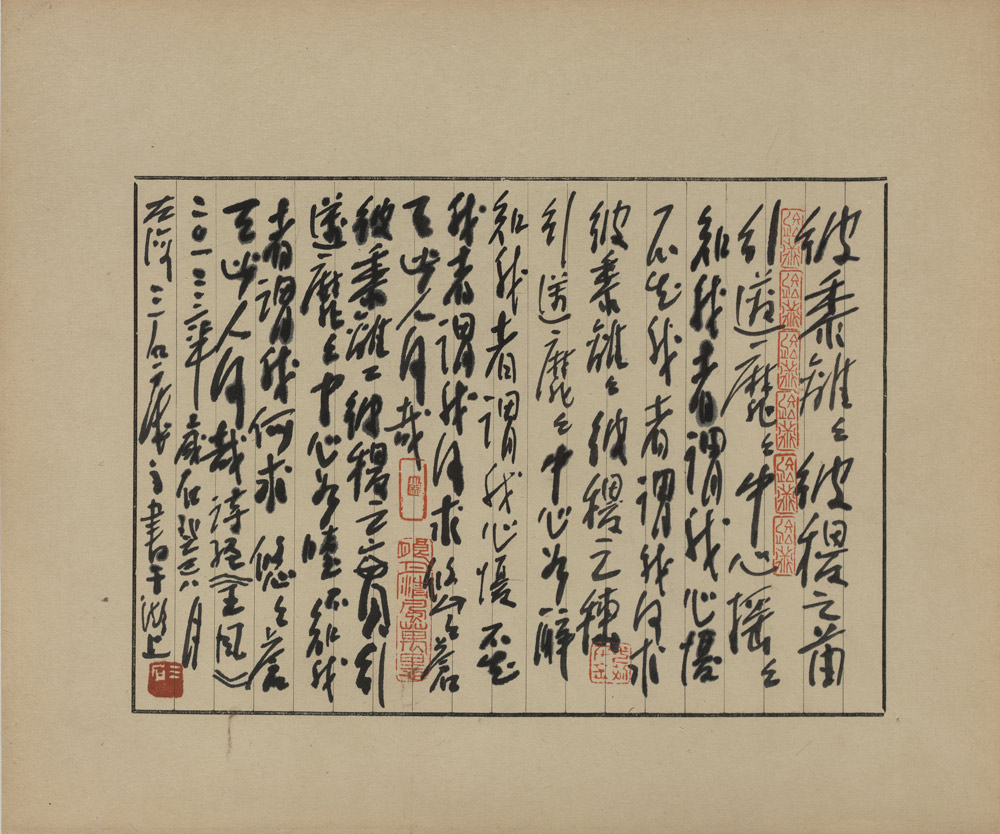 彼黍離々彼稷之苗
行邁靡々中心搖々
知我者謂我心憂
不知我者謂我何求
彼黍離々彼稷之穗
行邁靡々中心如醉
知我者謂我心憂不知
我者謂我何求悠々蒼
天此人何哉
彼黍離々彼稷之實行
邁靡々中心如噎不知我
者謂我何求悠々蒼
天此人何哉詩經《王風》
二〇一三年歲在癸巳八月
三石書于滬上
三石